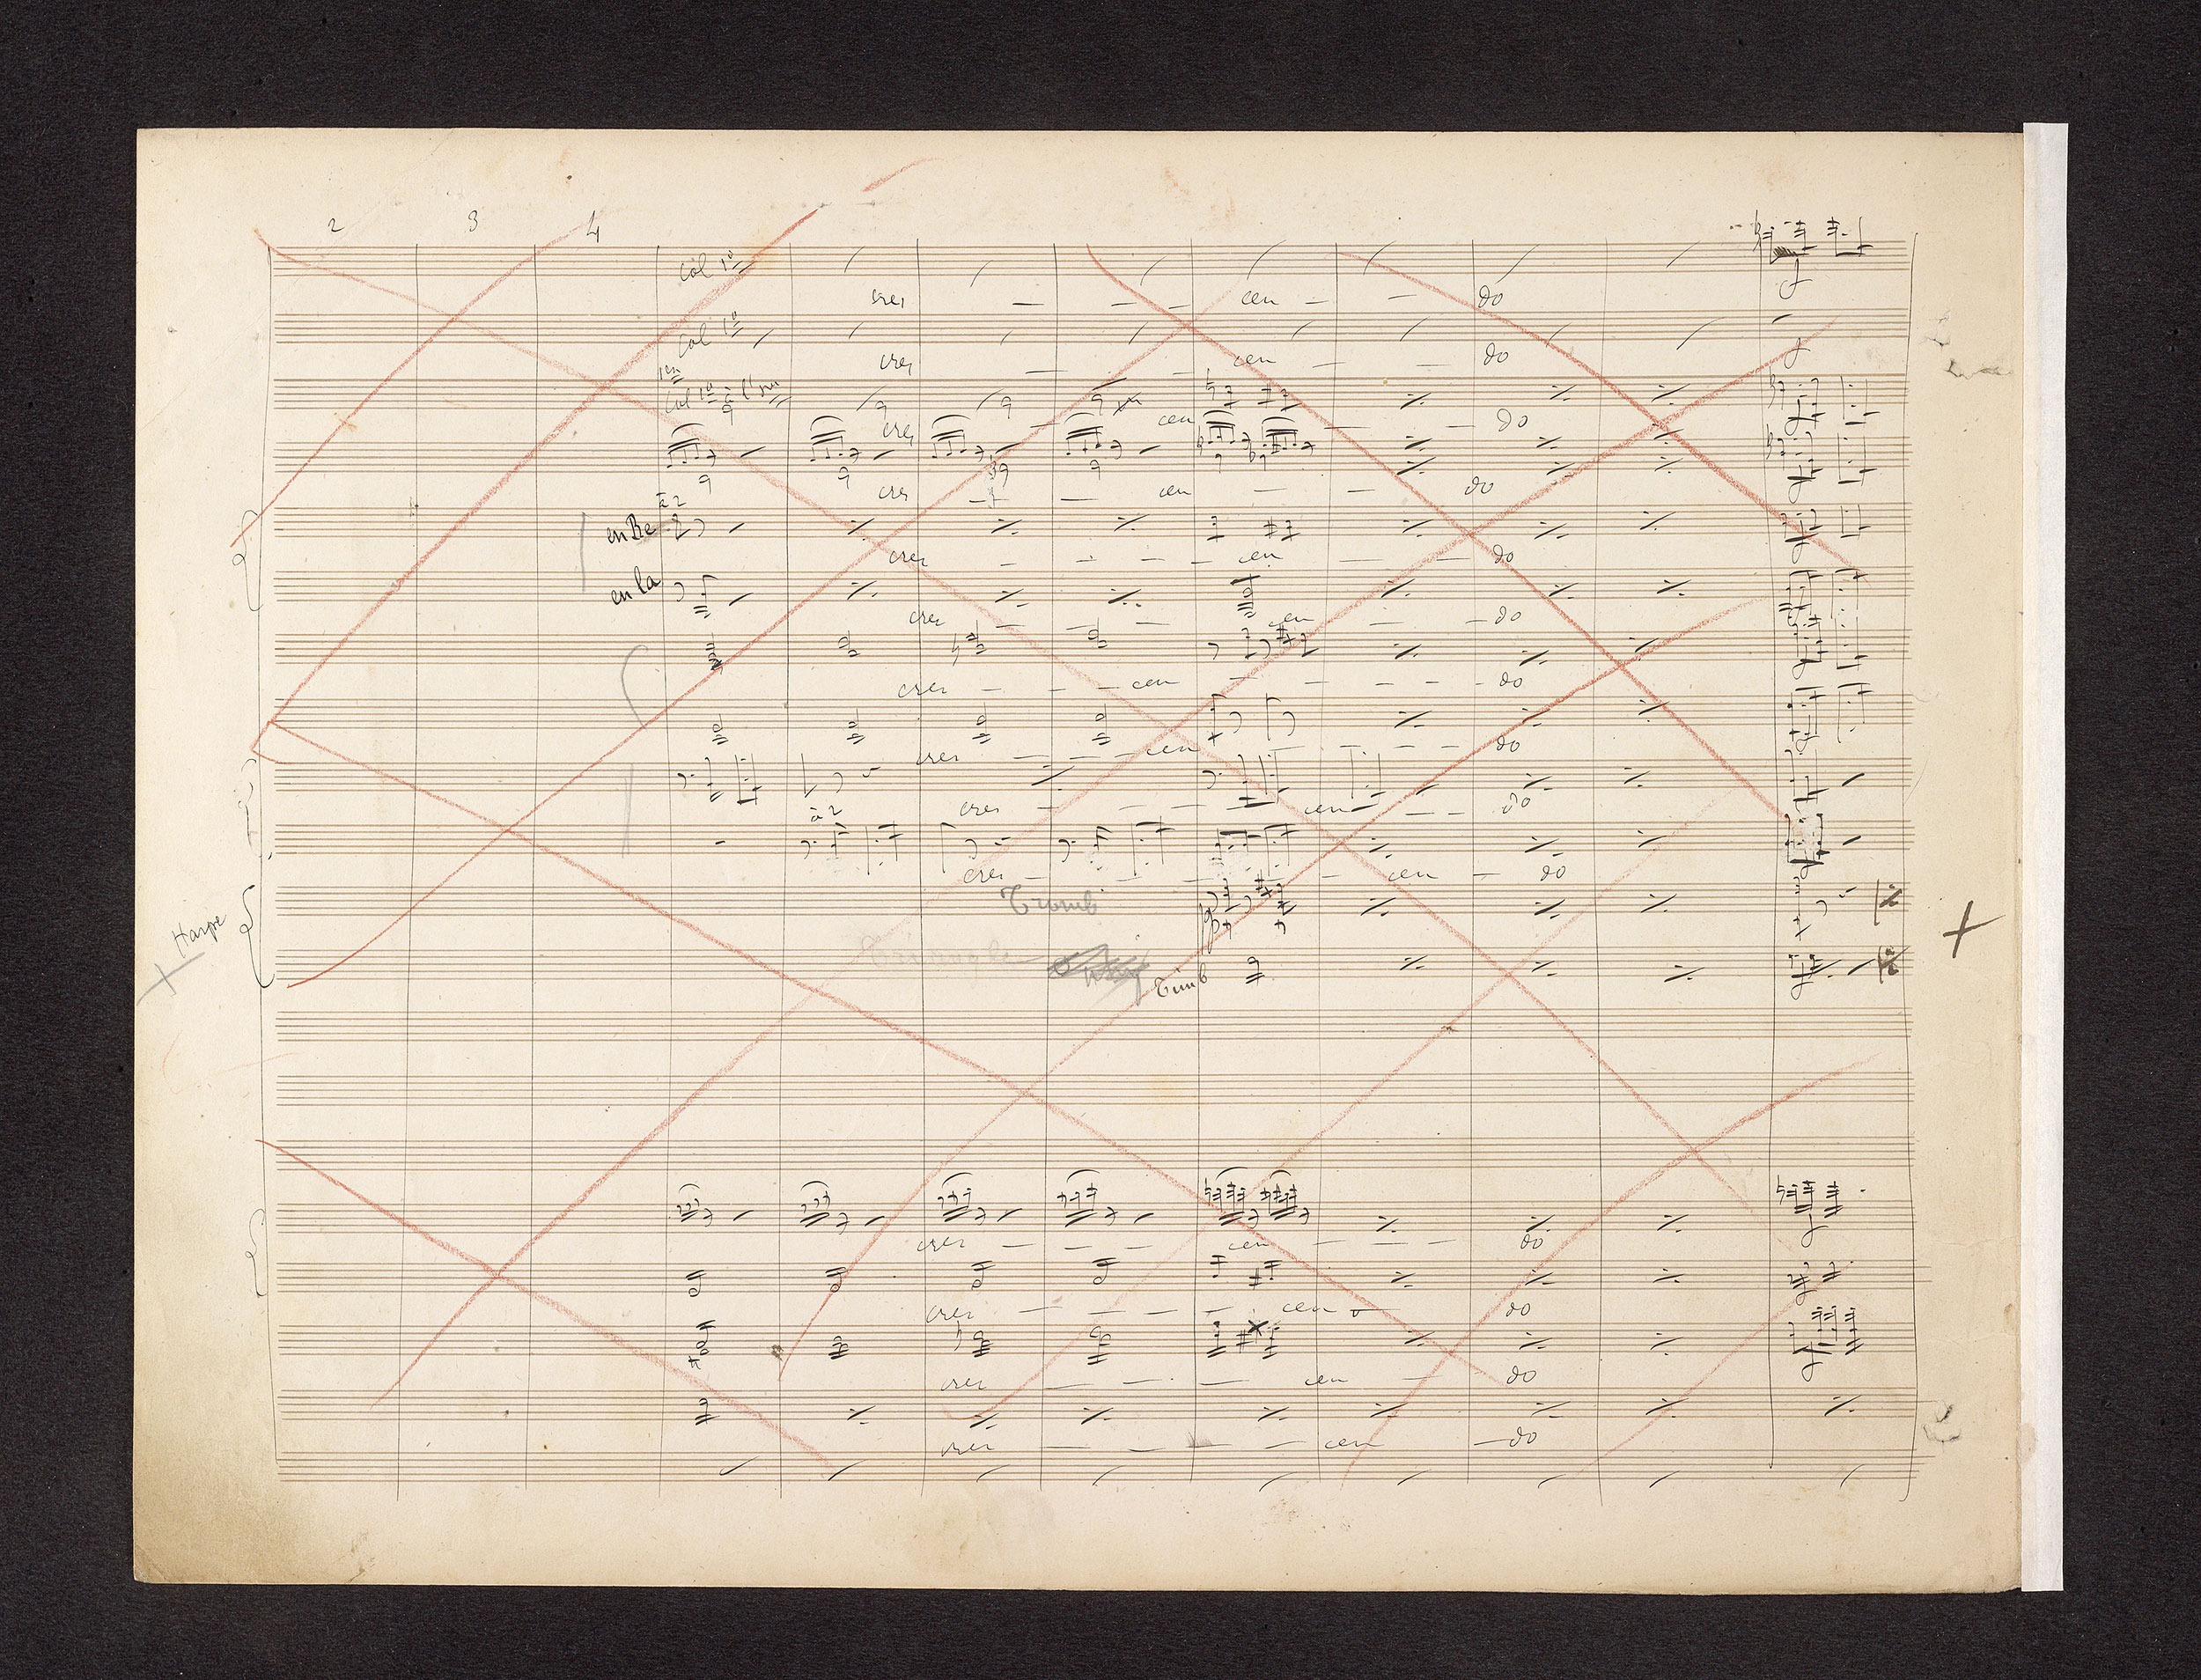 2 3 4
Col 1º
cres cen do
Col 1º
cres cen do
Col 1º à l'8va
cres cen do
cres cen do
à 2
en Re
cres cen do
en la
cres cen do
cres cen do
cres cen do
à 2
cres cen do
cres cen do
Tromb
Harpe
Triangle
Timb
cres cen do
cres cen do
cres cen do
cres cen do